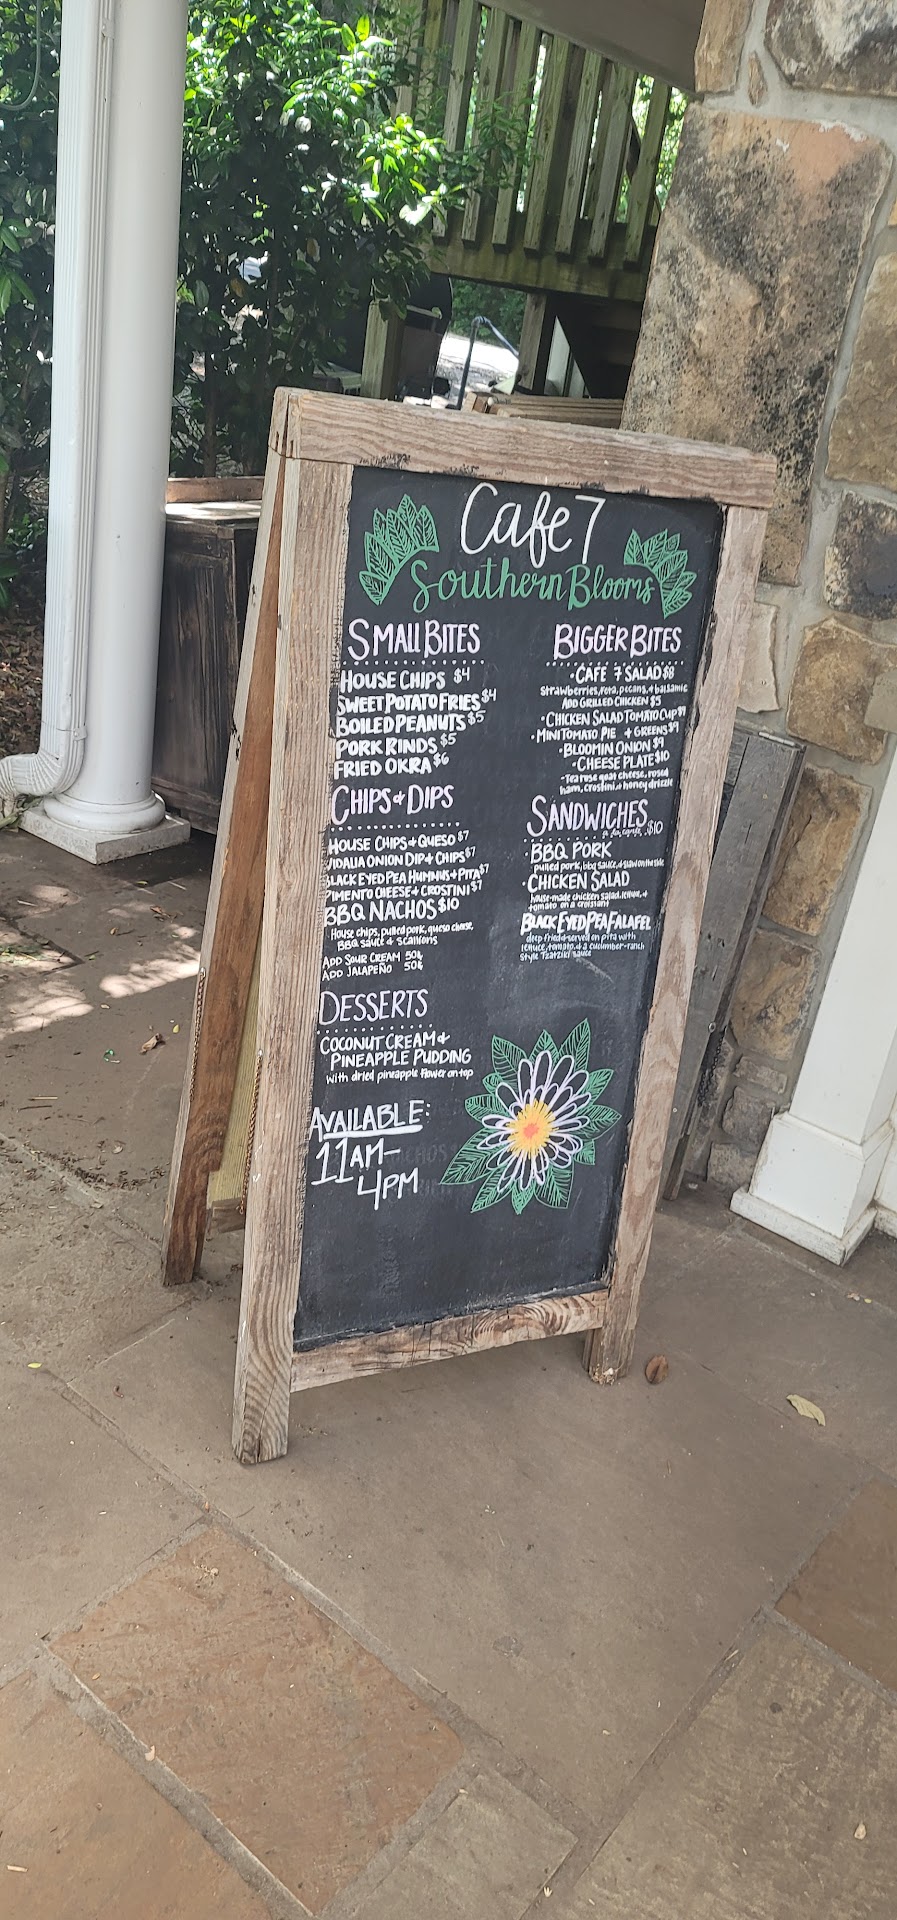 Cafe 7
Southern Blooms
SMALL BITES
HOUSE CHIPS $4
SWEET POTATO FRIES $4
BOILED PEANUTS $5
PORK RINDS $5
FRIED OKRA $6
CHIPS + DIPS
HOUSE CHIPS + QUESO $7
VIDALIA ONION DIP + CHIPS $7
BLACK EYED PEA HUMMUS + PITA $7
PIMENTO CHEESE + CROSTINI $7
BBQ NACHOS $10
House chips, pulled pork, queso cheese,
BBQ sauce & scallions
ADD SOUR CREAM 50¢
ADD JALAPEÑO 50¢
DESSERTS
COCONUT CREAM +
PINEAPPLE PUDDING
with dried pineapple flower on top
AVAILABLE:
11AM-
4PM
BIGGER BITES
• CAFE 7 SALAD $8
strawberries, feta, pecans, + balsamic
ADD GRILLED CHICKEN $5
• CHICKEN SALAD TOMATO CUP $9
• MINI TOMATO PIE + GREENS $9
• BLOOMIN ONION $9
• CHEESE PLATE $10
goat cheese,
ham, crostini, + honey drizzle
SANDWICHES
$10
• BBQ PORK
pulled pork, bbq sauce, + slaw on the side
• CHICKEN SALAD
house-made chicken salad, lettuce, +
tomato on a croissant
BLACK EYED PEA FALAFEL
deep fried + served on pita with
lettuce, tomato, & a cucumber-ranch
style Tzatziki sauce